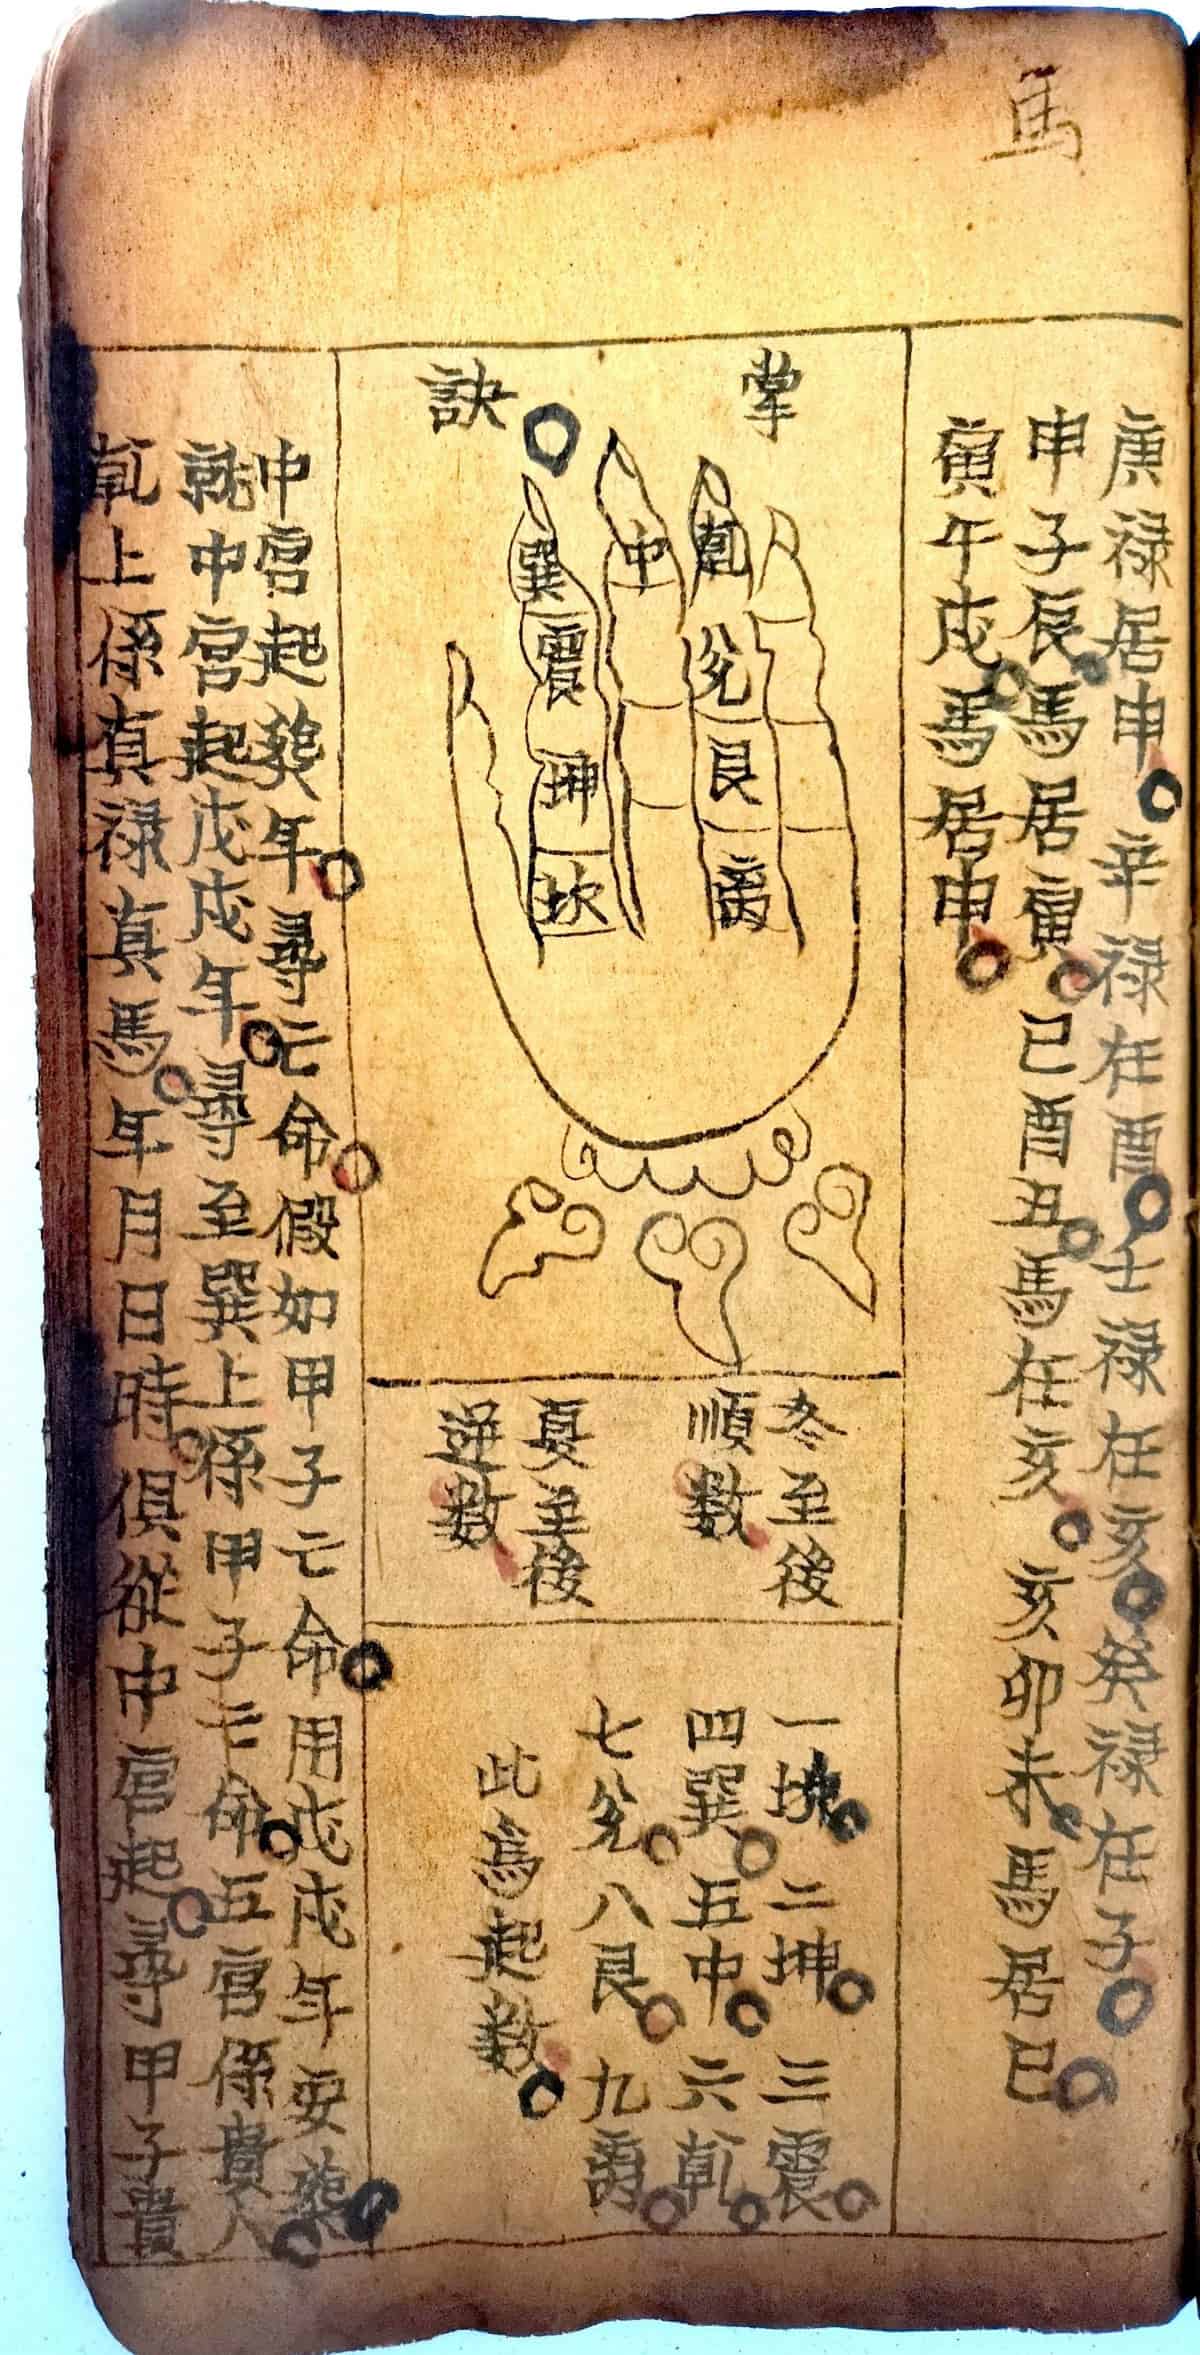 馬
庚禄居申辛禄在酉壬禄在亥癸禄在子
申子辰馬居寅巳酉丑馬在亥亥卯未馬居巳
寅午戌馬居申
掌訣
乾
兌
艮
離
中
巽
震
坤
坎
冬至後
順数
夏至後
逆数
一坎二坤三震
四巽五中六乾
七兌八艮九离
此為起数
中宮起葬年尋亡命假如甲子亡命用戊戌年安葬
就中宮起戊戌年尋至巽上係甲子亡命五宫係貴人
乾上係真禄真馬年月日時俱從中宫起尋甲子貴